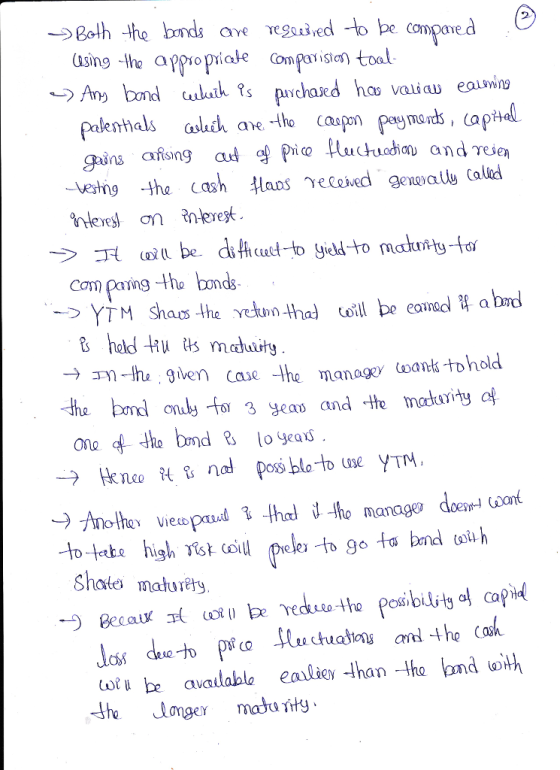 ②
→ Both the bonds are required to be compared
using the appropriate comparision tool.
→ Any bond which is purchased has various earning
potentials which are the coupon payments, capital
gains arising out of price fluctuations and rein
-vesting the cash flows received generally called
interest on interest.
→ It will be difficult to yield to maturity for
comparing the bonds.
→ YTM shows the return that will be earned if a bond
is held till its maturity.
→ In the given case the manager wants to hold
the bond only for 3 years and the maturity of
one of the bond is 10 years.
→ Hence it is not possible to use YTM.
→ Another viewpoint is that if the manager doesn't want
to take high risk will prefer to go for bond with
Shorter maturity.
→ Because It will be reduce the possibility of capital
loss due to price fluctuations and the cash
will be available earlier than the bond with
the longer maturity.